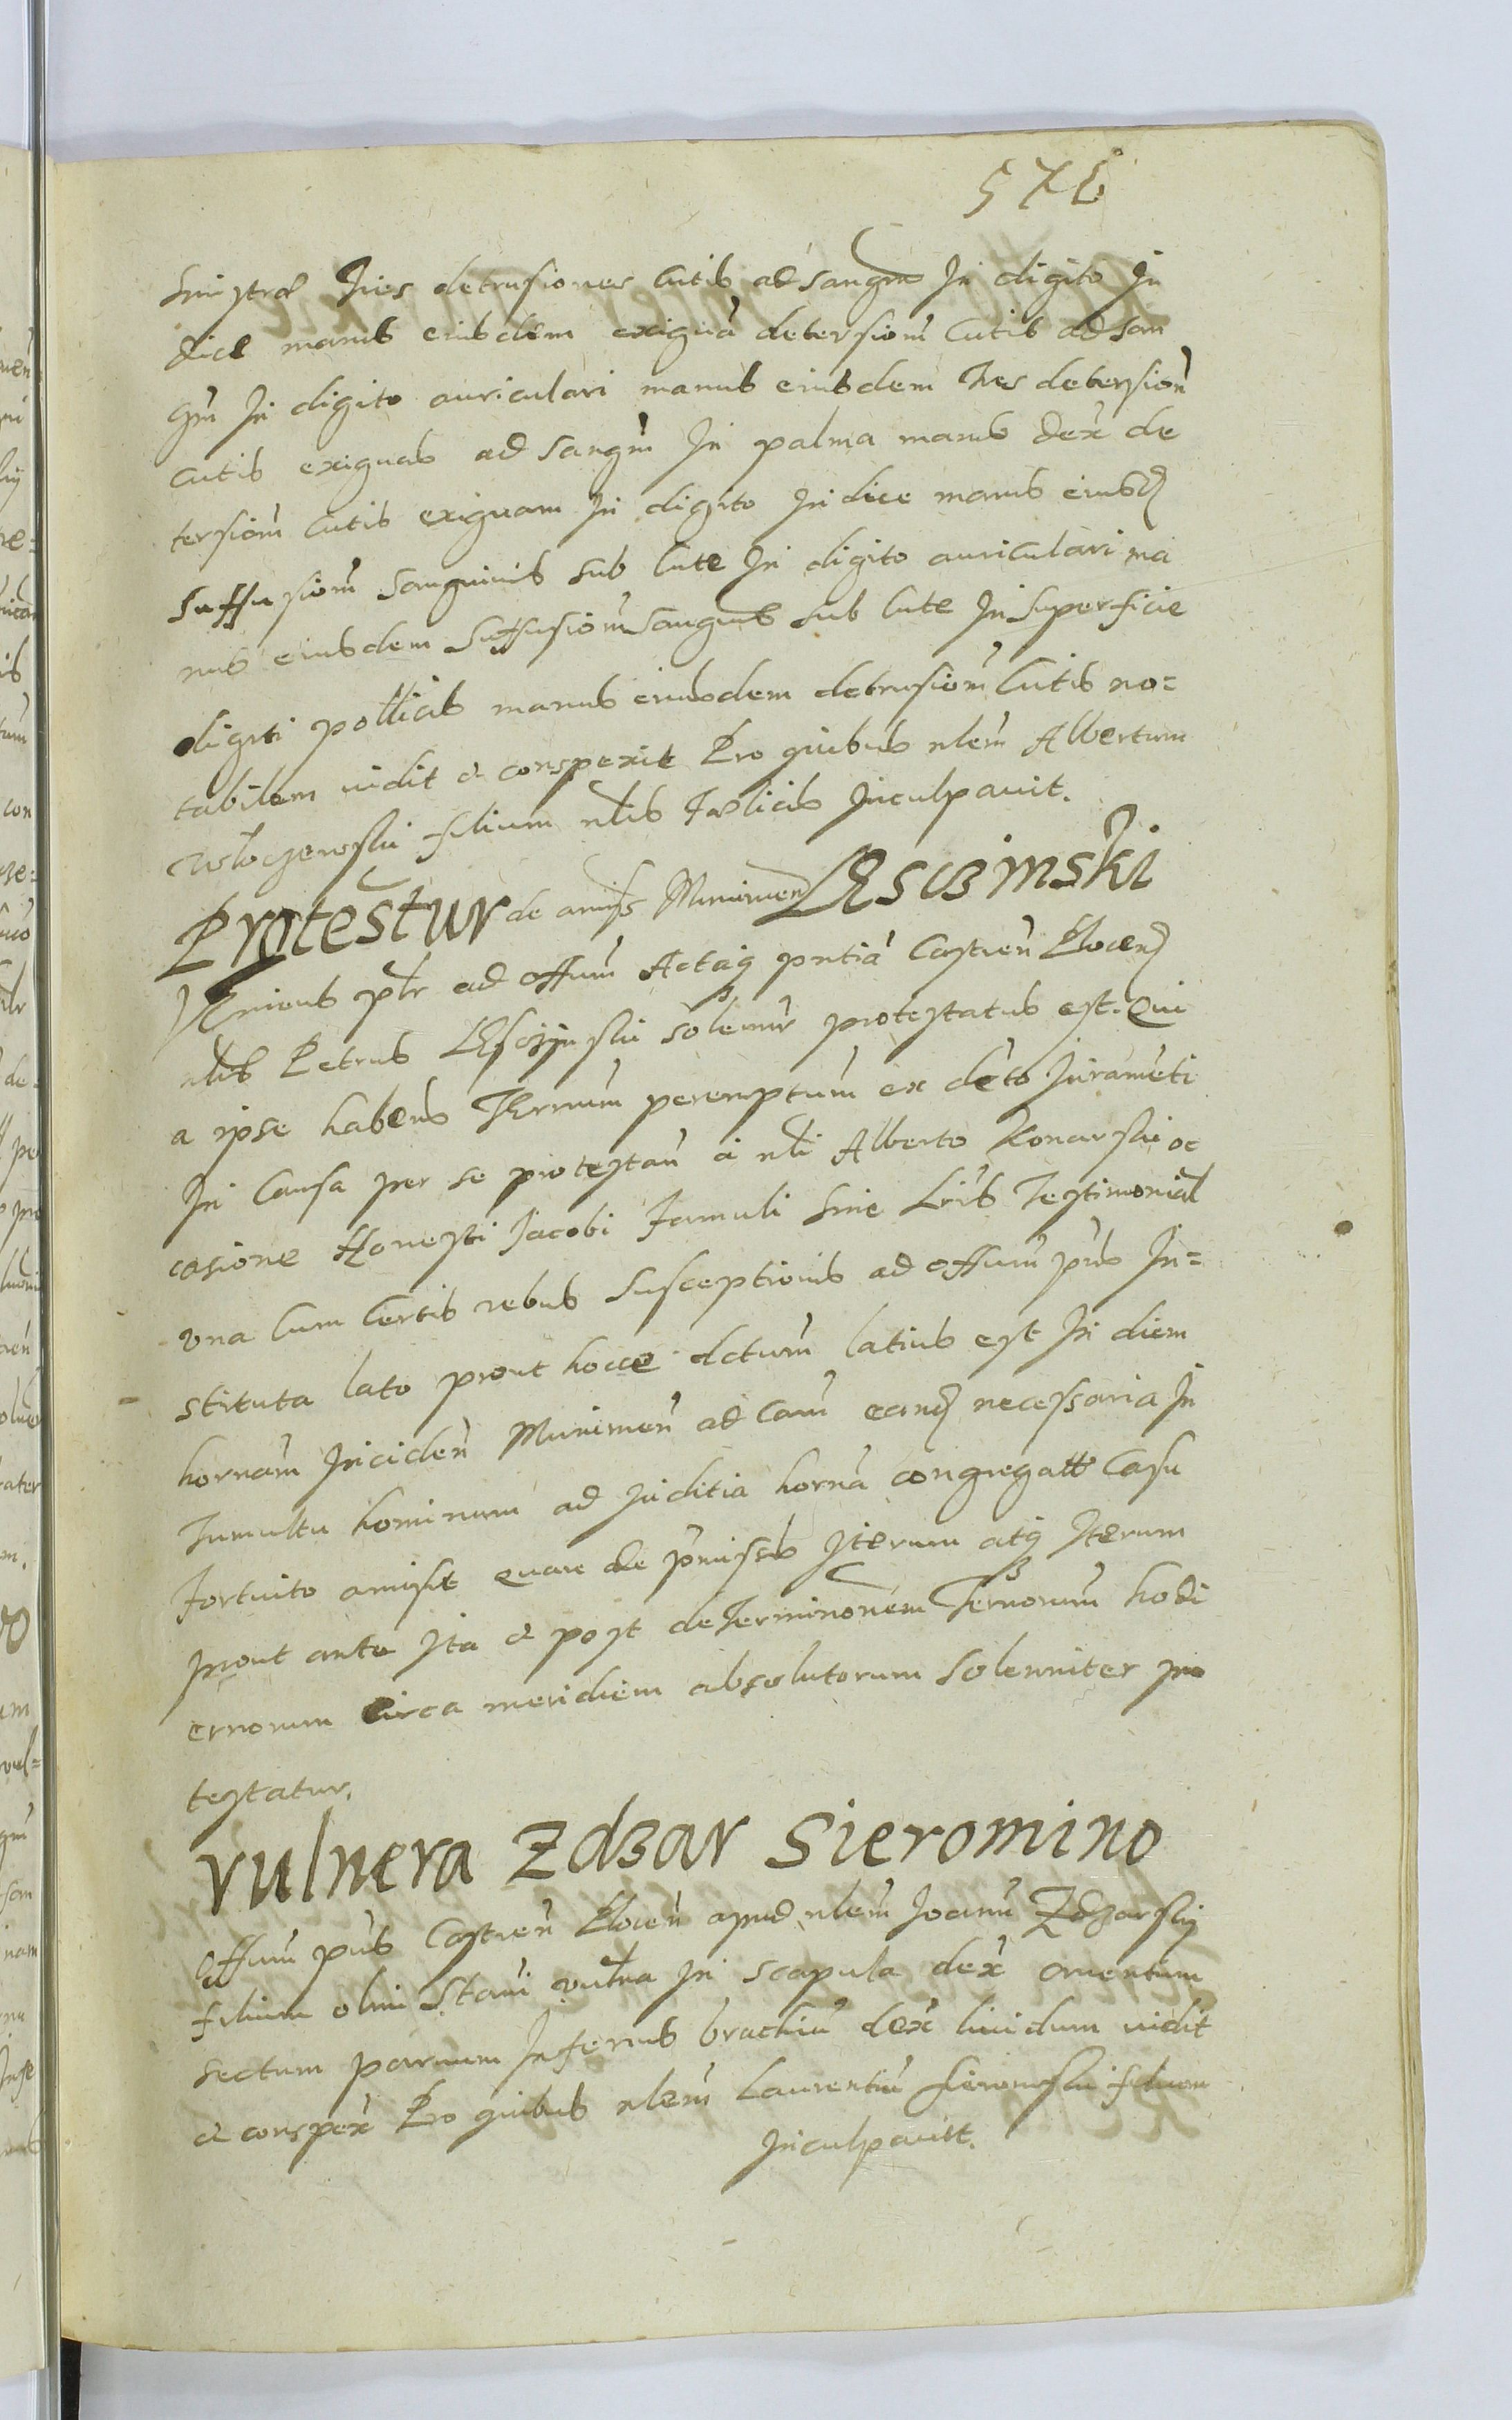 sinistra Tres detrusiones cutis ad sangm In digito In
dice manus eiusdem exiguã detersionẽ cutis ad san
gm In digito auriculari manus eiusdem Tres detersiones
cutis exiguas ad sangm In palma manus dex de
tersionẽ cutis exiguam In digito Indice manus eiusd
suffusionẽ sanguinis sub cute In digito auriculari ma
nus eiusdem suffusionẽ sanguis sub cute In superficie
digiti pollicis manus eiusdem detrusionẽ cutis no=
tabilem vidit et conspexit Pro quibus nlem Albertum
filium nlis Foelicis Inculpauit.
Protestur de amiss Munimen Lesczinski
Veniens plr ad offum Actaq pntia Castren Kloven
nlis Petrus Lesczynski solenr protestatus est. Qui
a ipse habens Terminum peremptum ex decto Iuramẽti
In Causa per se protestan a nli Alberto Konarski oc
casione Honesti Jacobi Famuli sine Lris Testimonial
vna cum certis rebus susceptionis ad offum pns In=
stituta lato prout hocce dctum latius est In diem
hornam Inciden Munimen ad Cam eand necessaria In
Tumultu hominum ad Iuditia horna congregatt Casu
fortuito amisit Quare de pmissis Iterum atq Iterum
prout ante Ita et post determinonem Terminorum hodi
ernorum circa meridiem absolutorum solenniter pro
testatur.
Vulnera Zdzar Sieromino
Offum pns Castren Kloven apud nlem Joannẽ Zdzarski
filium olim Stani vulna In scapula dex
sectum paruum Inferius brachiũ dex liuidum vidit
et conspex Pro quibus nlem Laurentiũ filium
Inculpauitt.